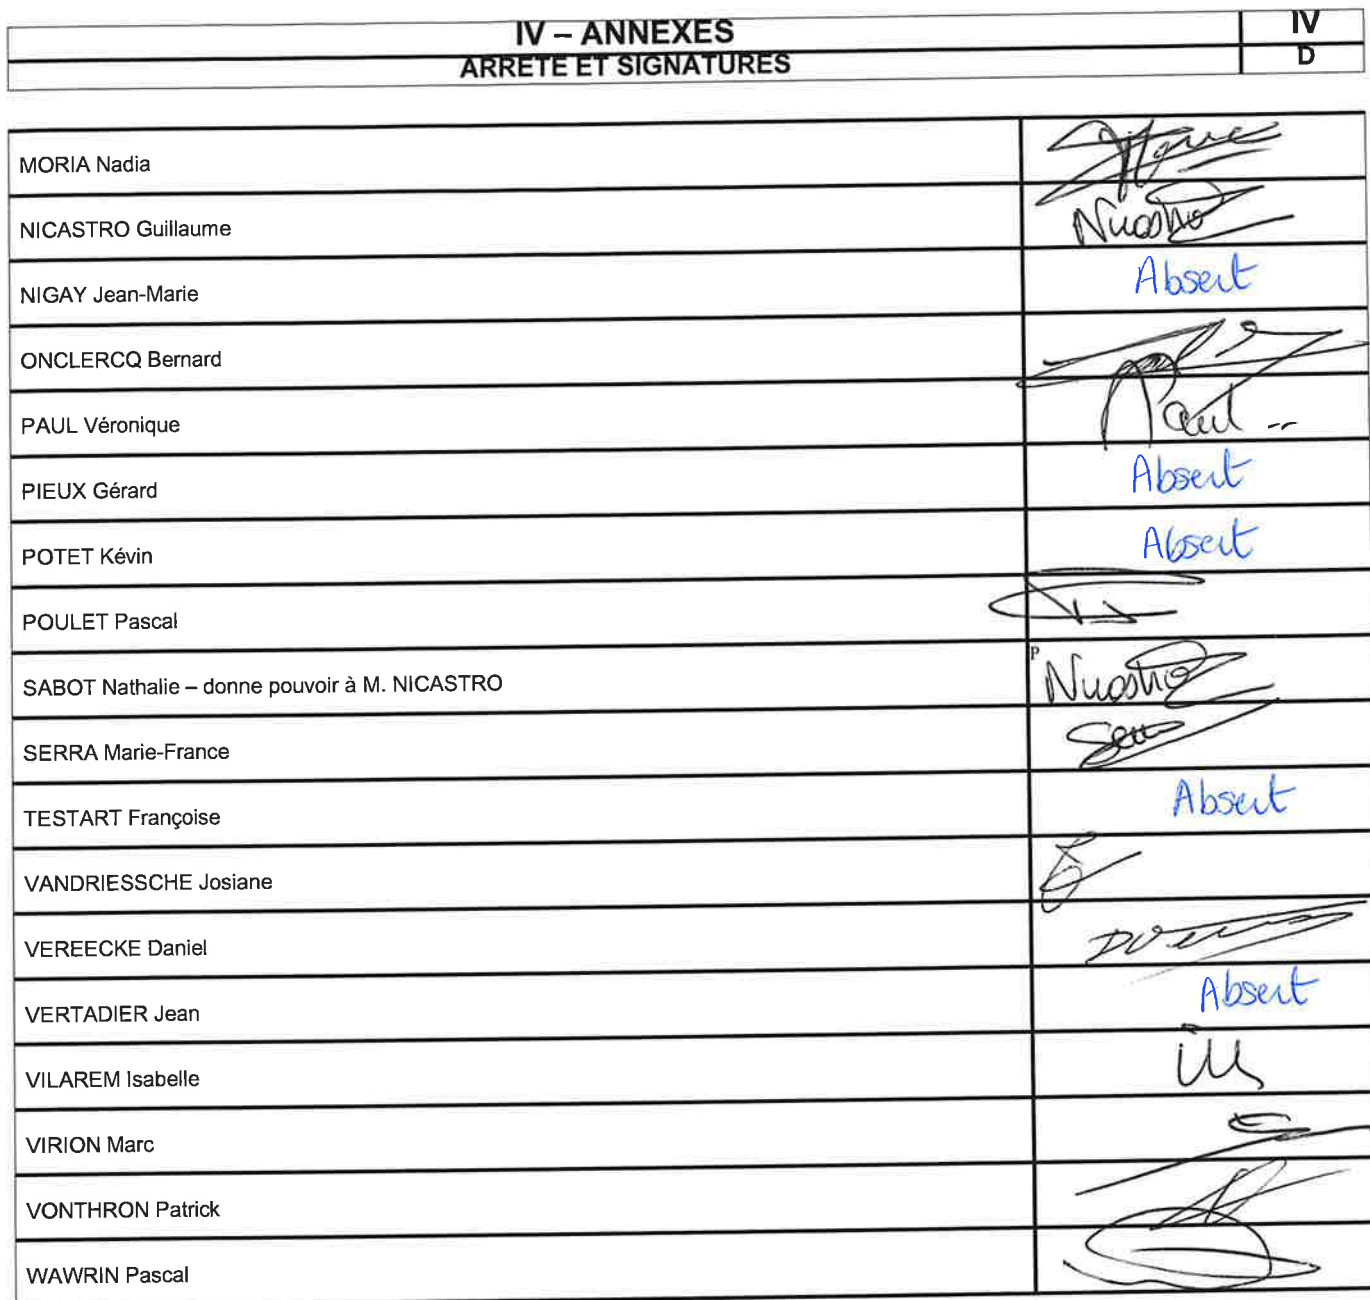 IV – ANNEXES
IV
ARRETE ET SIGNATURES
D
MORIA Nadia
NICASTRO Guillaume
Nicastro
NIGAY Jean-Marie
Absent
ONCLERCQ Bernard
PAUL Véronique
Paul
PIEUX Gérard
Absent
POTET Kévin
Absent
POULET Pascal
SABOT Nathalie – donne pouvoir à M. NICASTRO
P
Nicastro
SERRA Marie-France
TESTART Françoise
Absent
VANDRIESSCHE Josiane
VEREECKE Daniel
VERTADIER Jean
Absent
VILAREM Isabelle
VIRION Marc
VONTHRON Patrick
WAWRIN Pascal